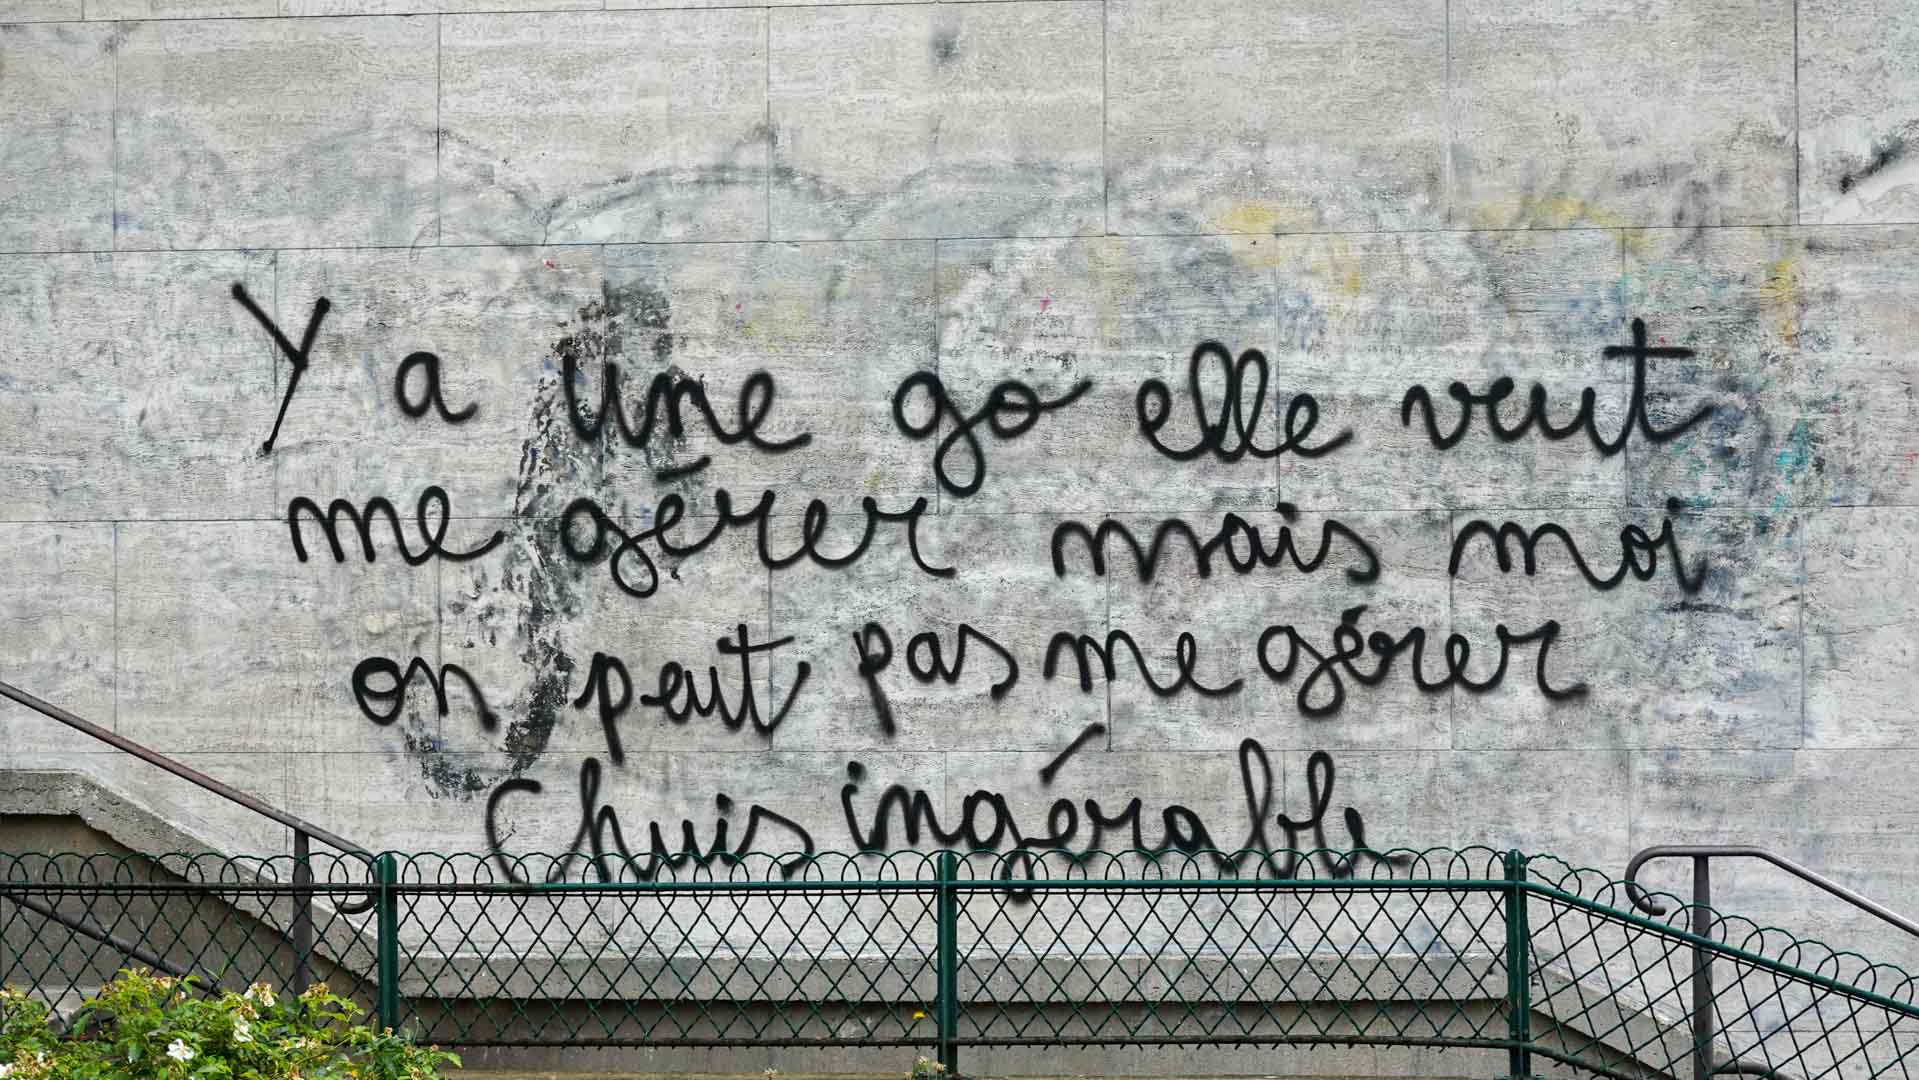 Y a une go elle veut
me gérer mais moi
on peut pas me gérer
Chuis ingérable